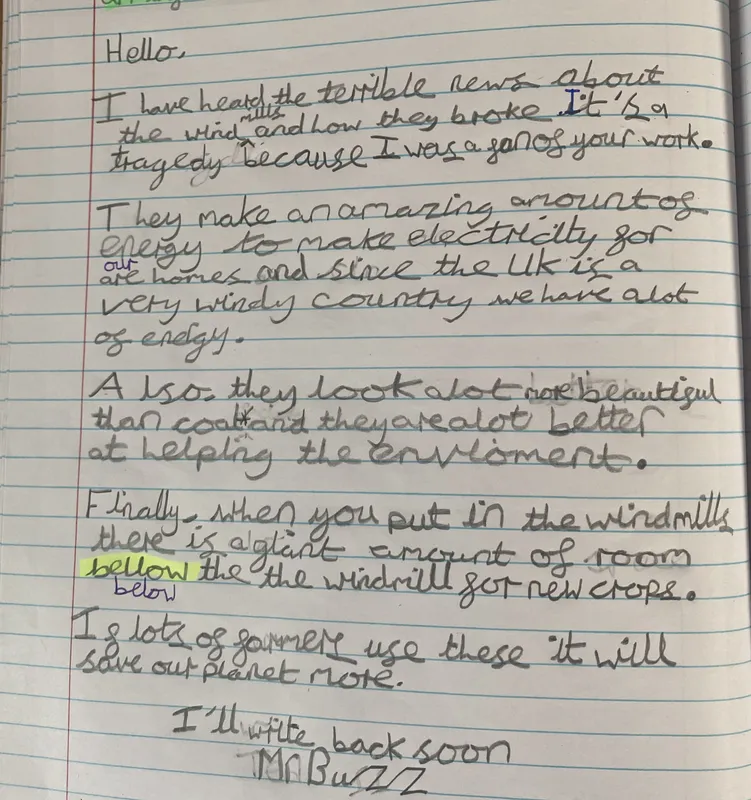 Hello,
I have heard the terrible news about
the wind mills and how they broke. It's a
tragedy because I was a fan of your work.
They make an amazing amount of
energy to make electricity for
our
are homes and since the UK is a
very windy country we have alot
of energy.
Also, they look alot more beautiful
than coal* and they are alot better
at helping the enviroment.
Finally, when you put in the windmills
there is a giant amount of room
bellow the the windmill for new crops.
below
If lots of farmers use these it will
save our planet more.
I'll write back soon
Mr Buzz